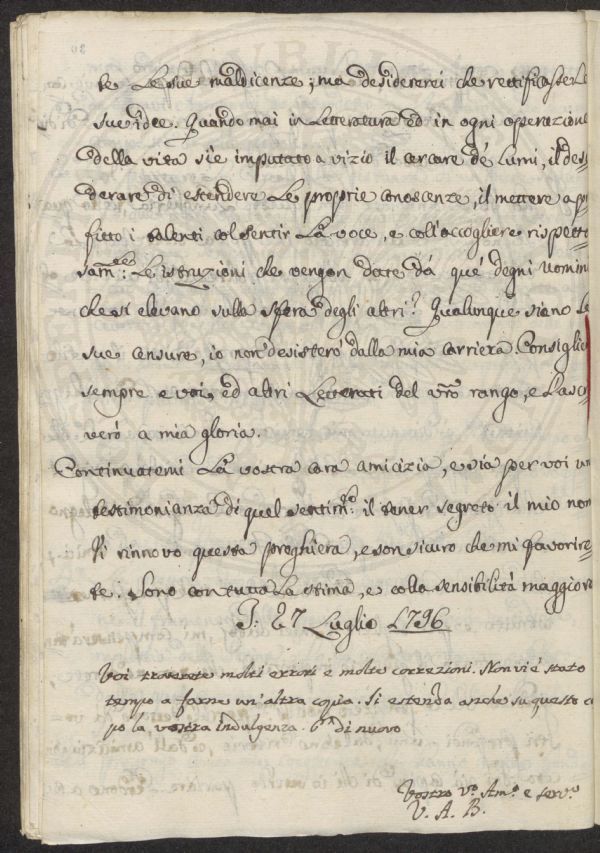 te le sue maldicenze; ma desidererei che rettificaste le
sue idee. Quando mai in Letteratura ed in ogni operazione
della vita s'è imputato a vizio il cercare de' lumi, il des=
derare di estendere le proprie conoscenze, il mettere a pro
fitto i talenti col sentir la voce, e coll'accogliere rispetto
sam:te le istruzioni che vengon date da què degni Uomin
che si elevano sulla sfera degli altri? Qualunque siano le
sue censure, io non desisterò dalla mia carriera. Consiglie
sempre e voi, ed altri Letterati del vro rango, e l'ascri
verò a mia gloria.
Continuatemi la vostra cara amicizia, e sia per voi un
testimonianza di quel sentim:to il tener segreto il mio nom
Vi rinnovo questa preghiera, e son sicuro che mi favorire=
te. Sono con tutta la stima, e colla sensibilità maggiore
27 Luglio 1796
Voi troverete molti errori e molte correzioni. Non vi è stato
tempo a farne un'altra copia. Si estenda anche su questo ca
po la vostra indulgenza. di nuovo
Vostro vo Amo e servo
V. A. B.